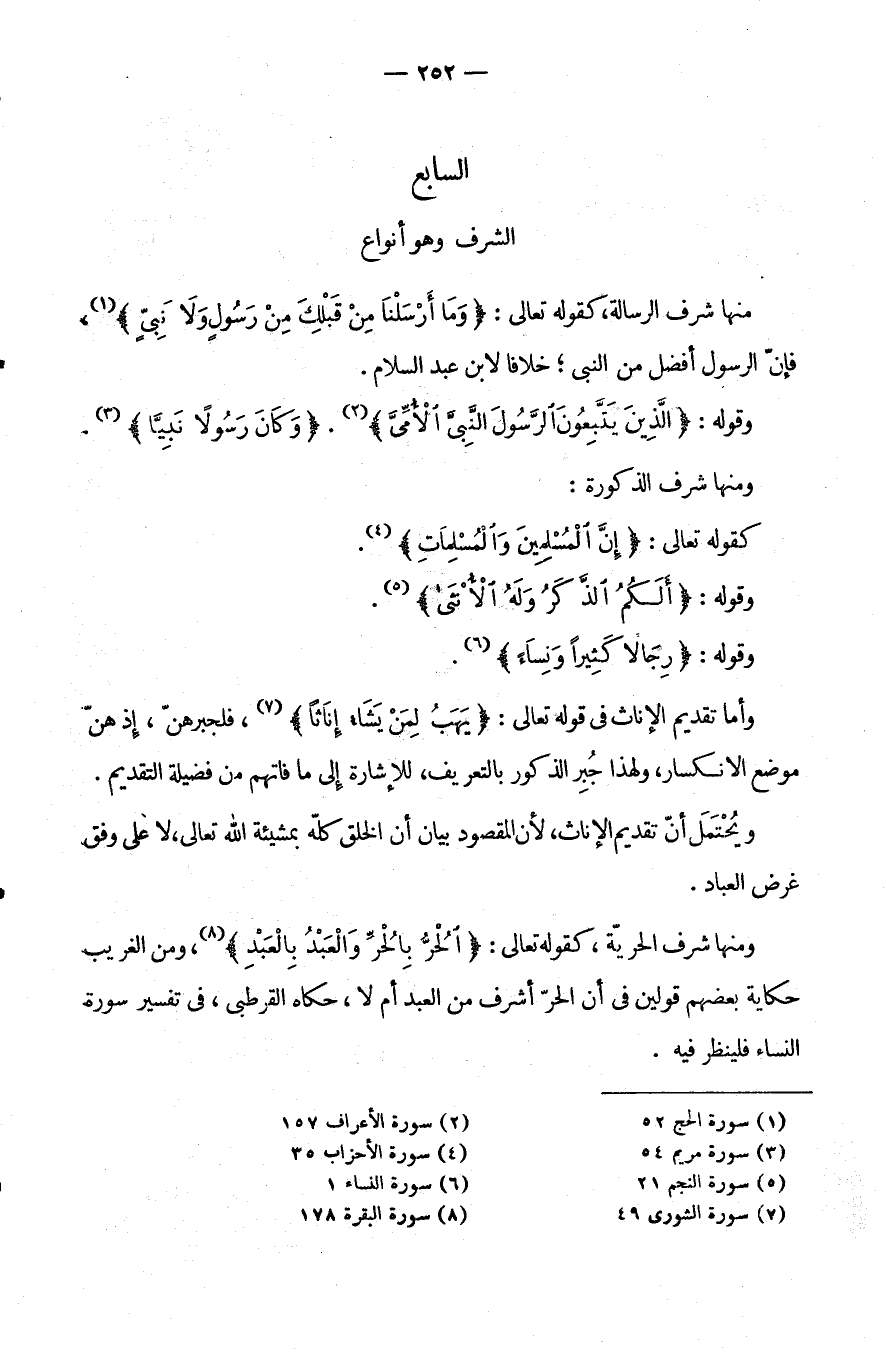 — ٢٥٢ —
السابع
الشرف وهو أنواع
منها شرف الرسالة، كقوله تعالى : ﴿ وَمَا أَرْسَلْنَا مِنْ قَبْلِكَ مِنْ رَسُولٍ وَلَا نَبِيٍّ ﴾(١)،
فإنّ الرسول أفضل من النبى ؛ خلافا لابن عبد السلام .
وقوله : ﴿ الَّذِينَ يَتَّبِعُونَ ٱلرَّسُولَ النَّبِيَّ ٱلْأُمِّيَّ ﴾(٢) . ﴿ وَكَانَ رَسُولًا نَبِيًّا ﴾ (٣) .
ومنها شرف الذكورة :
كقوله تعالى : ﴿ إِنَّ ٱلْمُسْلِمِينَ وَٱلْمُسْلِمَاتِ ﴾ (٤) .
وقوله : ﴿ أَلَكُمُ ٱلذَّكَرُ وَلَهُ ٱلْأُنْثَىٰ ﴾ (٥) .
وقوله : ﴿ رِجَالًا كَثِيراً وَنِسَاءً ﴾ (٦) .
وأما تقديم الإناث فى قوله تعالى : ﴿ يَهَبُ لِمَنْ يَشَاءُ إِنَاثًا ﴾ (٧) ، فلجبرهنّ ، إذ هنّ
موضع الانكسار، ولهذا جُبِر الذكور بالتعريف، للإشارة إلى ما فاتهم من فضيلة التقديم .
ويُحْتَمَلَ أنّ تقديم الإناث، لأن المقصود بيان أن الخلق كلّه بمشيئة الله تعالى، لا على وفق
غرض العباد .
ومنها شرف الحريّة ، كقوله تعالى : ﴿ ٱلْحُرُّ بِالْحُرِّ وَالْعَبْدُ بِالْعَبْدِ ﴾(٨)، ومن الغريب
حكاية بعضهم قولين فى أن الحرّ أشرف من العبد أم لا ، حكاه القرطبى ، فى تفسير سورة
النساء فلينظر فيه .
(١) سورة الحج ٥٢ (٢) سورة الأعراف ١٥٧
(٣) سورة مريم ٥٤ (٤) سورة الأحزاب ٣٥
(٥) سورة النجم ٢١ (٦) سورة النساء ١
(٧) سورة الشورى ٤٩ (٨) سورة البقرة ١٧٨